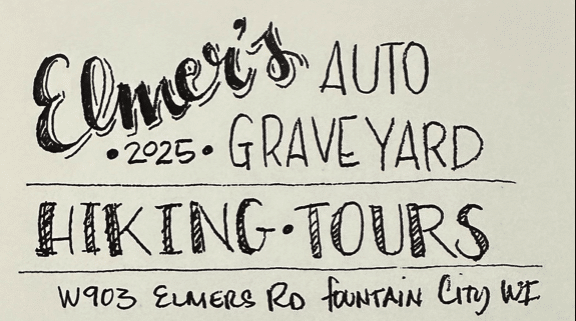 Elmer's AUTO
•2025• GRAVEYARD
HIKING•TOURS
W903 ELMERS RD fountain City WI